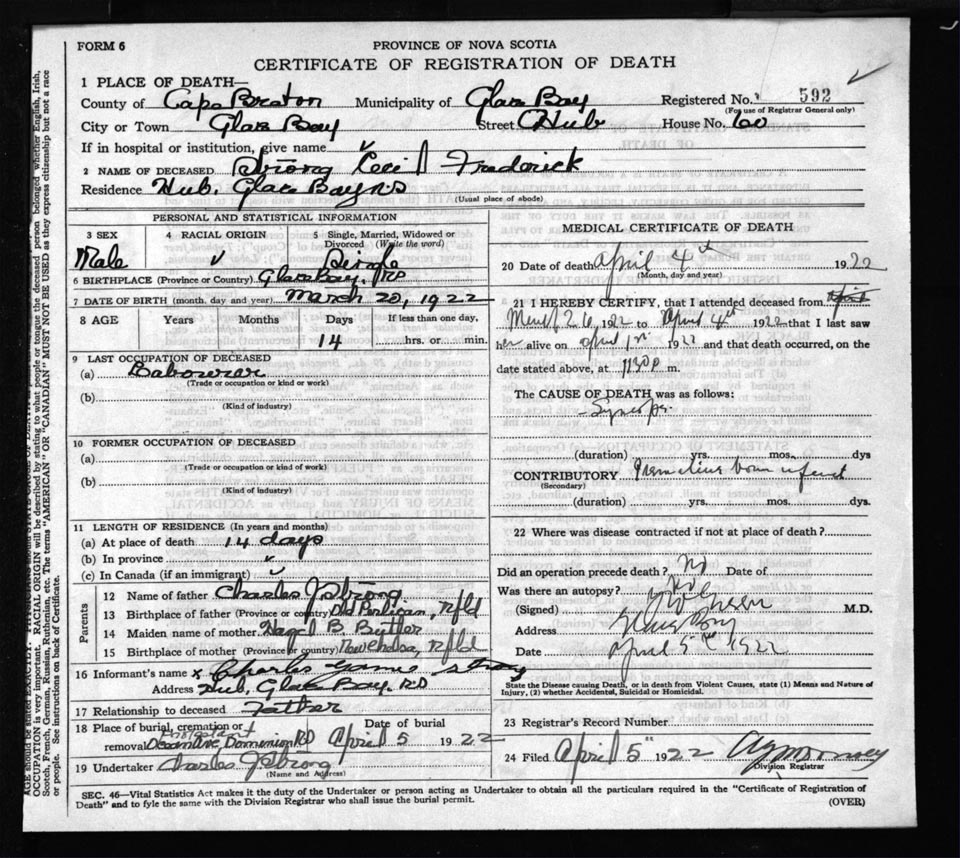 FORM 6
PROVINCE OF NOVA SCOTIA
CERTIFICATE OF REGISTRATION OF DEATH
1 PLACE OF DEATH—
County of Cape Breton Municipality of Glace Bay Registered No. 592
(For use of Registrar General only)
City or Town Glace Bay Street Hub House No. 60
If in hospital or institution, give name
2 NAME OF DECEASED Strong Cecil Frederick
Residence Hub, Glace Bay NS
(Usual place of abode)
PERSONAL AND STATISTICAL INFORMATION
3 SEX 4 RACIAL ORIGIN 5 Single, Married, Widowed or Divorced (Write the word)
Male Single
6 BIRTHPLACE (Province or Country) Glace Bay, NS
7 DATE OF BIRTH (month, day and year) March 20, 1922
8 AGE Years Months Days If less than one day,
14 hrs. or min.
9 LAST OCCUPATION OF DECEASED
(a)
(Trade or occupation or kind or work)
(b)
(Kind of industry)
10 FORMER OCCUPATION OF DECEASED
(a)
(Trade or occupation or kind of work)
(b)
(Kind of industry)
11 LENGTH OF RESIDENCE (In years and months)
(a) At place of death 14 days
(b) In province
(c) In Canada (if an immigrant)
Parents
12 Name of father Charles J Strong
13 Birthplace of father (Province or country) Old Perlican, Nfld
14 Maiden name of mother Hazel B Butler
15 Birthplace of mother (Province or country) Nfld
16 Informant's name x Charles James Strong
Address Hub, Glace Bay. NS
17 Relationship to deceased Father
18 Place of burial, cremation or removal Protestant Ocean Ave, Dominion NS
Date of burial April 5 1922
19 Undertaker Charles J Strong
(Name and Address)
MEDICAL CERTIFICATE OF DEATH
20 Date of death April 4th 1922
(Month, day and year)
21 I HEREBY CERTIFY, that I attended deceased from April
March 26 1922 to April 4th 1922 that I last saw
her alive on April 1st 1922 and that death occurred, on the
date stated above, at 1130 p. m.
The CAUSE OF DEATH was as follows:
Syncope
(duration) yrs. mos. dys
CONTRIBUTORY Premature born infant
(Secondary)
(duration) yrs. mos. dys.
22 Where was disease contracted if not at place of death?
Did an operation precede death? No Date of
Was there an autopsy? No
(Signed) M.D.
Address Glace Bay
Date April 5th 1922
State the Disease causing Death, or in death from Violent Causes, state (1) Means and Nature of
Injury, (2) whether Accidental, Suicidal or Homicidal.
23 Registrar's Record Number
24 Filed April 5" 1922
Division Registrar
SEC. 46—Vital Statistics Act makes it the duty of the Undertaker or person acting as Undertaker to obtain all the particulars required in the "Certificate of Registration of
Death" and to fyle the same with the Division Registrar who shall issue the burial permit.
(OVER)
OCCUPATION is very important. RACIAL ORIGIN will be described by stating to what people or tongue the deceased person belonged whether English, Irish,
Scotch, French, German, Russian, Ruthenian, etc. The terms "AMERICAN" or "CANADIAN" MUST NOT BE USED as they express citizenship but not a race
or people. See instructions on back of Certificate.